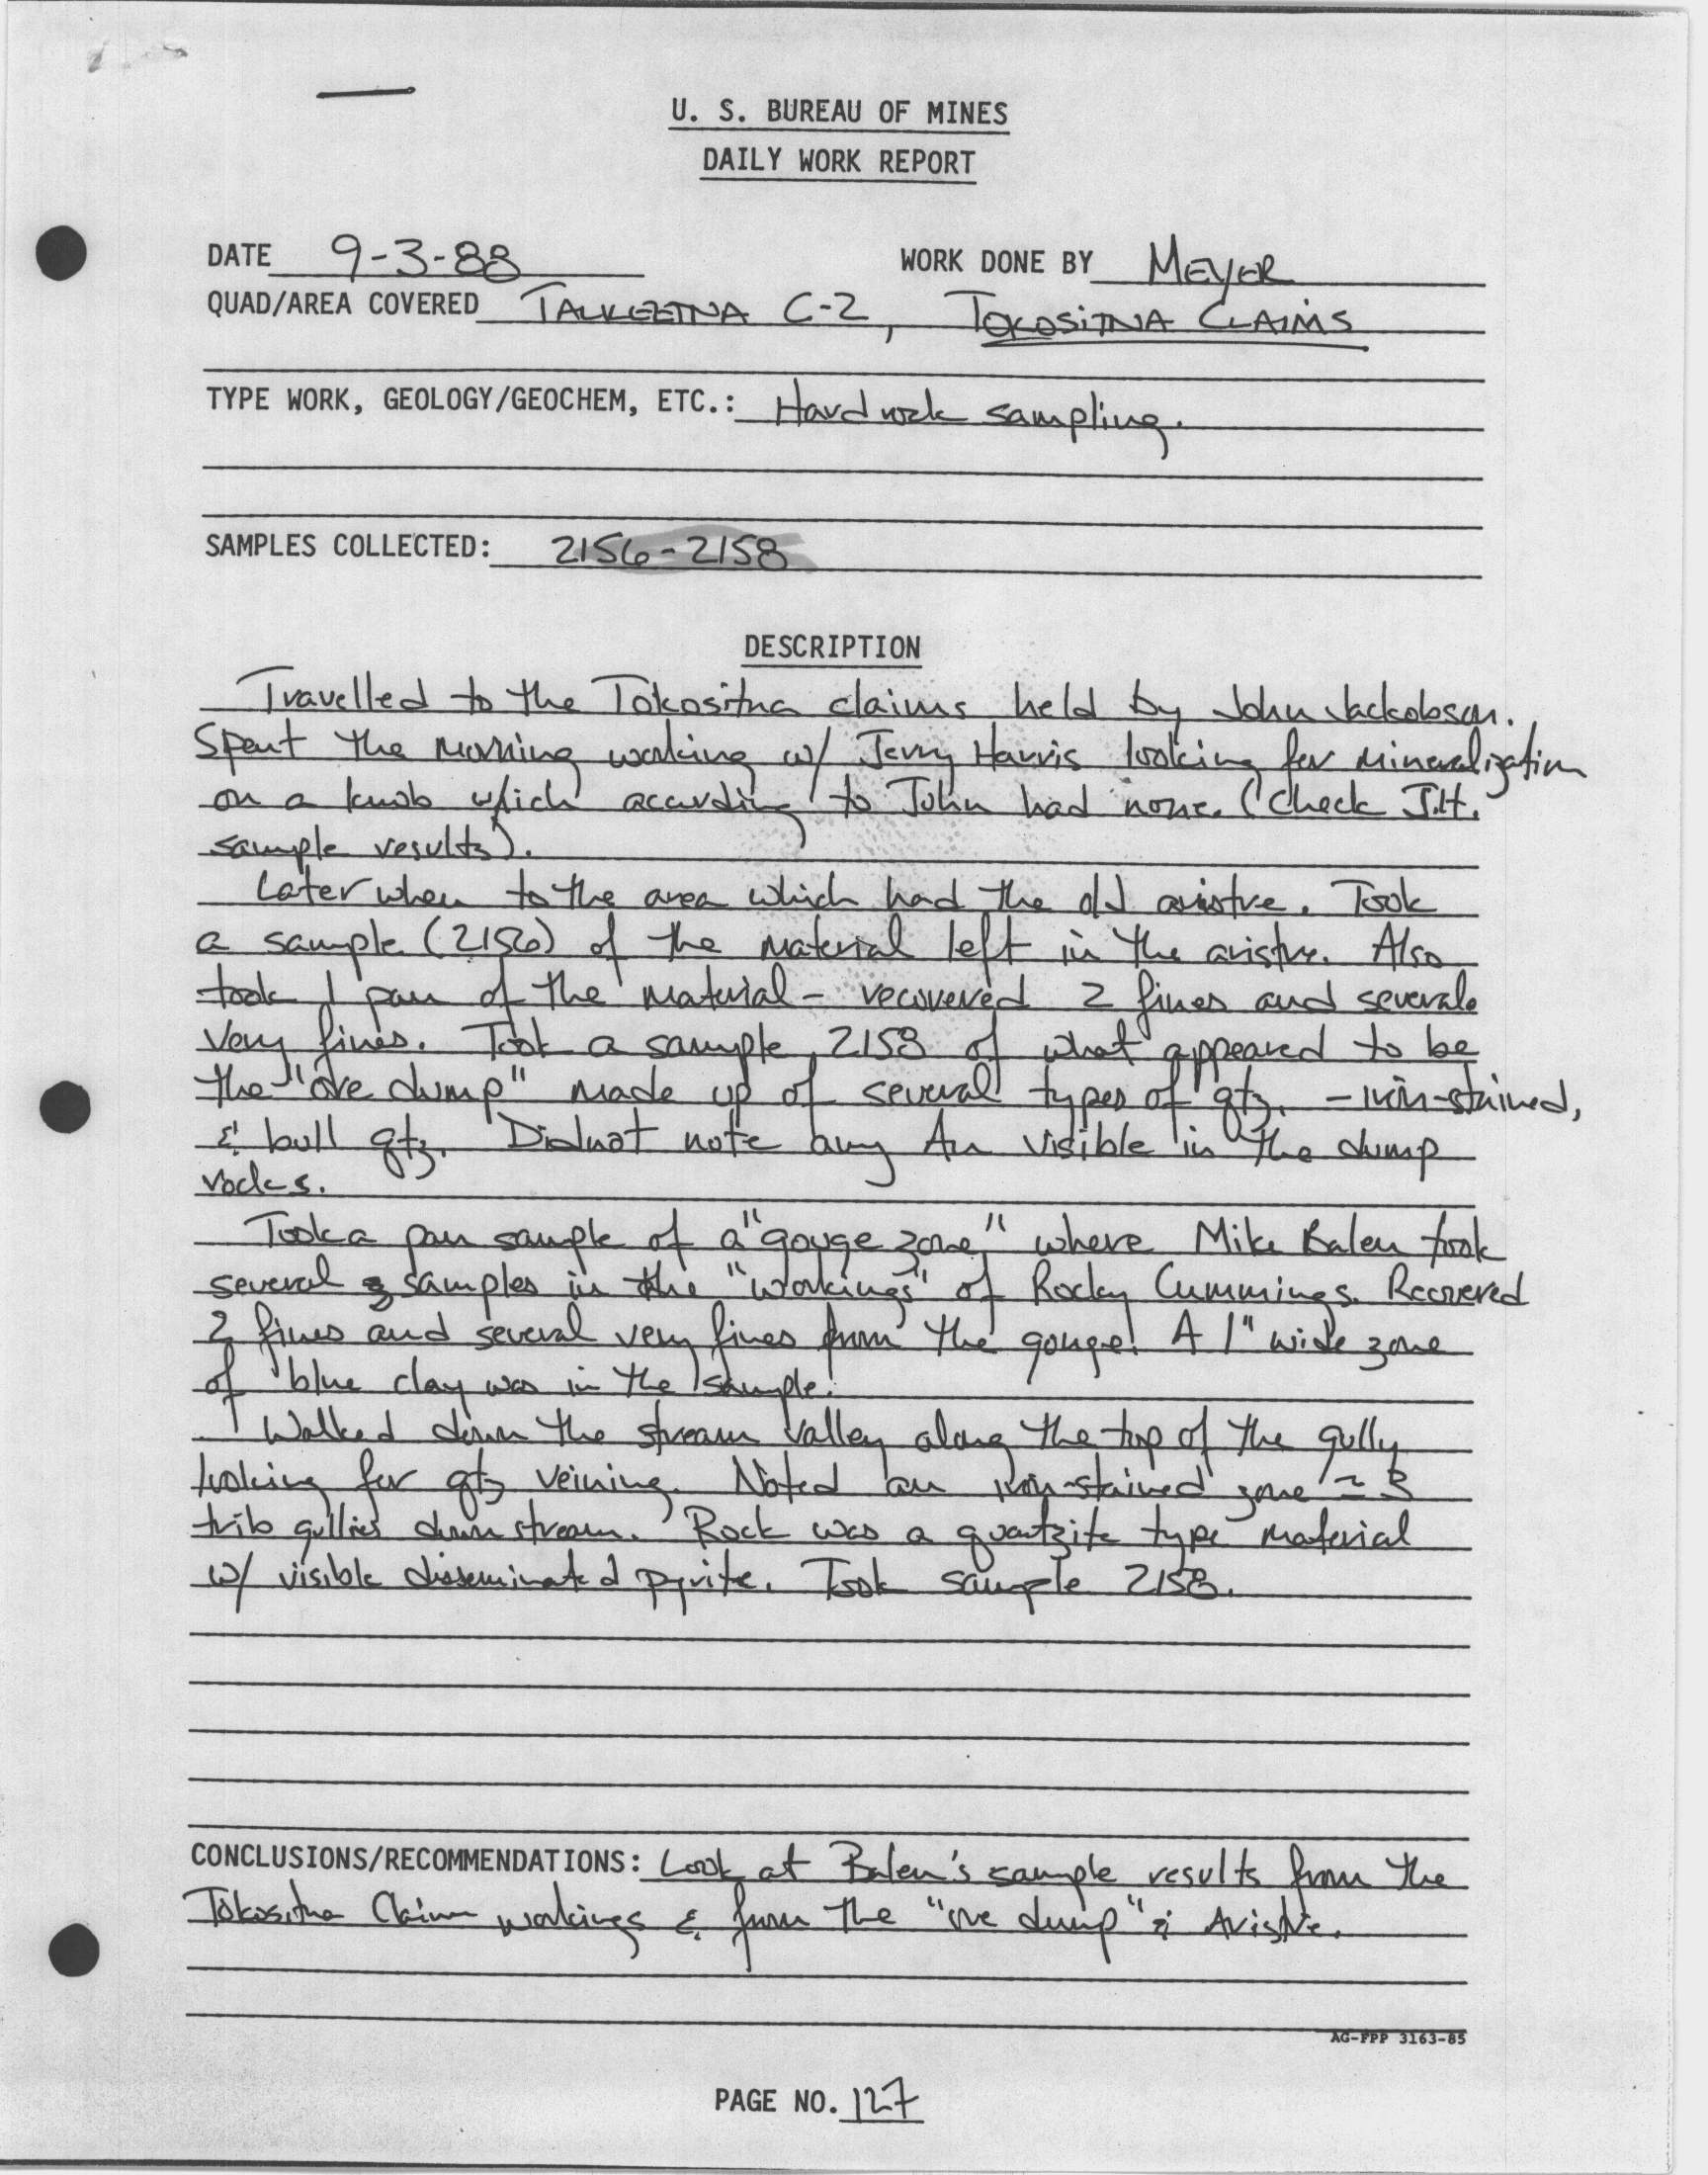 U. S. BUREAU OF MINES
DAILY WORK REPORT
DATE 9-3-88 WORK DONE BY MEYER
QUAD/AREA COVERED TALKEETNA C-2, TOKOSITNA CLAIMS
TYPE WORK, GEOLOGY/GEOCHEM, ETC.: Hardrock sampling.
SAMPLES COLLECTED: 2156-2158
DESCRIPTION
Travelled to the Tokositna claims held by John Jackobson.
Spent the morning working w/ Jerry Harris looking for mineralization
on a knob which according to John had none. (Check J.H.
sample results).
Later when to the area which had the old aristre. Took
a sample (2156) of the material left in the aristre. Also
took 1 pan of the material - recovered 2 fines and severale
very fines. Took a sample 2158 of what appeared to be
the "ore dump" made up of several types of qtz. - iron-stained,
& bull qtz. Did not note any Au visible in the dump
rocks.
Took a pan sample of a "gouge zone" where Mike Balen took
several samples in the "workings" of Rocky Cummings. Recovered
2 fines and several very fines from the gouge! A 1" wide zone
of blue clay was in the sample.
Walked down the stream valley along the top of the gully
looking for qtz veining. Noted an iron-stained zone ≈ 3
trib gullies downstream. Rock was a quartzite type material
w/ visible disseminated pyrite. Took sample 2158.
CONCLUSIONS/RECOMMENDATIONS: Look at Balen's sample results from the
Tokositna Claim workings & from the "ore dump" & Aristre.
AG-FPP 3163-85
PAGE NO. 127